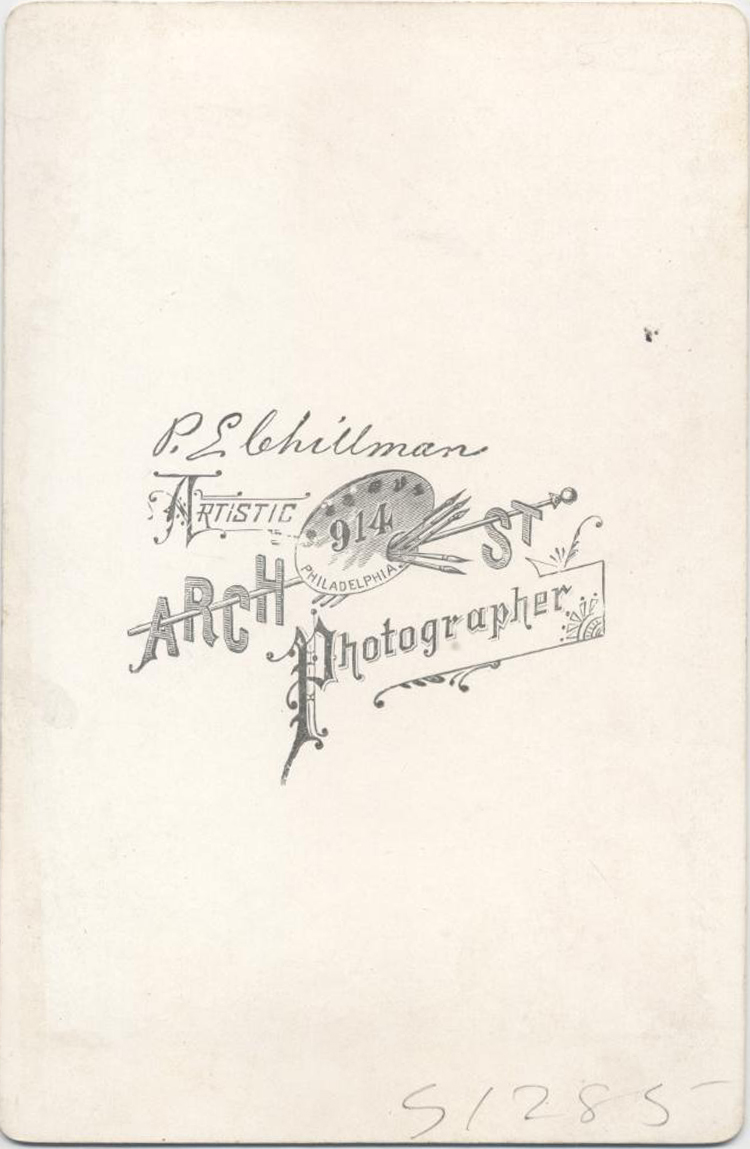 P. E Chillman
ARTISTIC
914
PHILADELPHIA
ARCH ST
Photographer
S1285